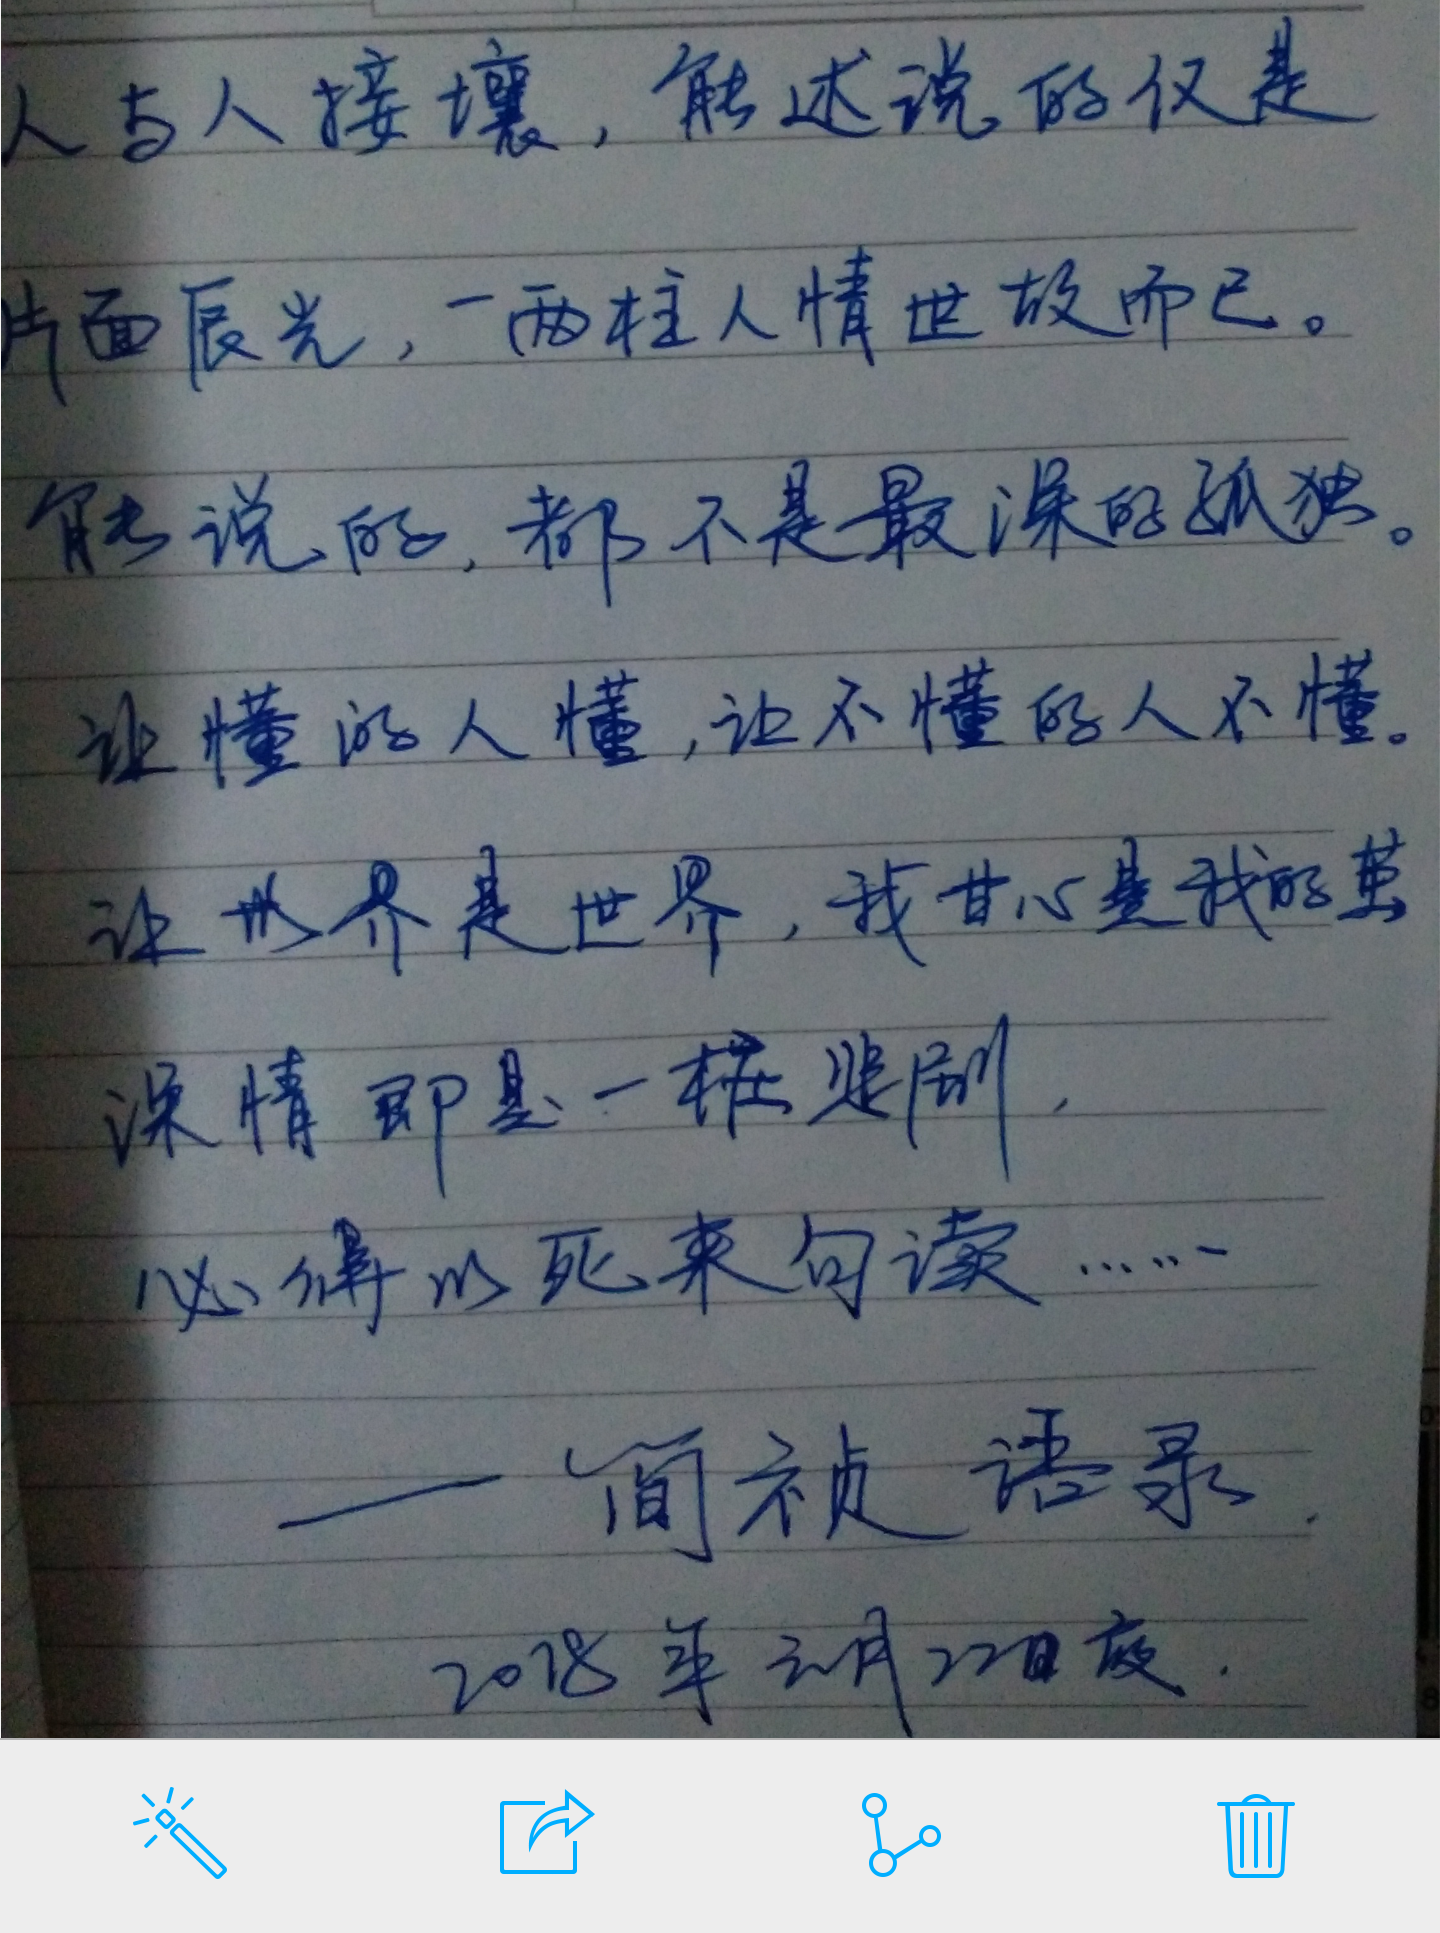 人与人接壤，能述说的仅是
片面辰光，一两柱人情世故而已。
能说的，都不是最深的孤独。
让懂的人懂，让不懂的人不懂。
让世界是世界，我甘心是我的茧
深情即是一桩悲剧，
必得以死来句读……
——简祯 语录.
2018年 月22日夜.